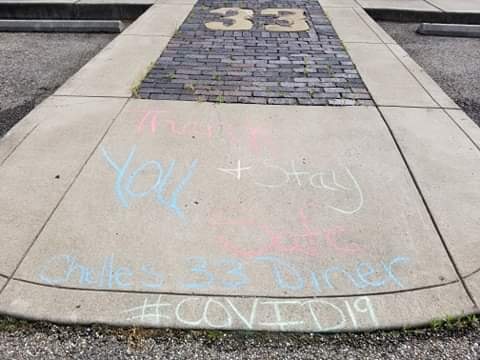 33
Thank
You + Stay
Safe
Chelle's 33 Diner
#COVID19